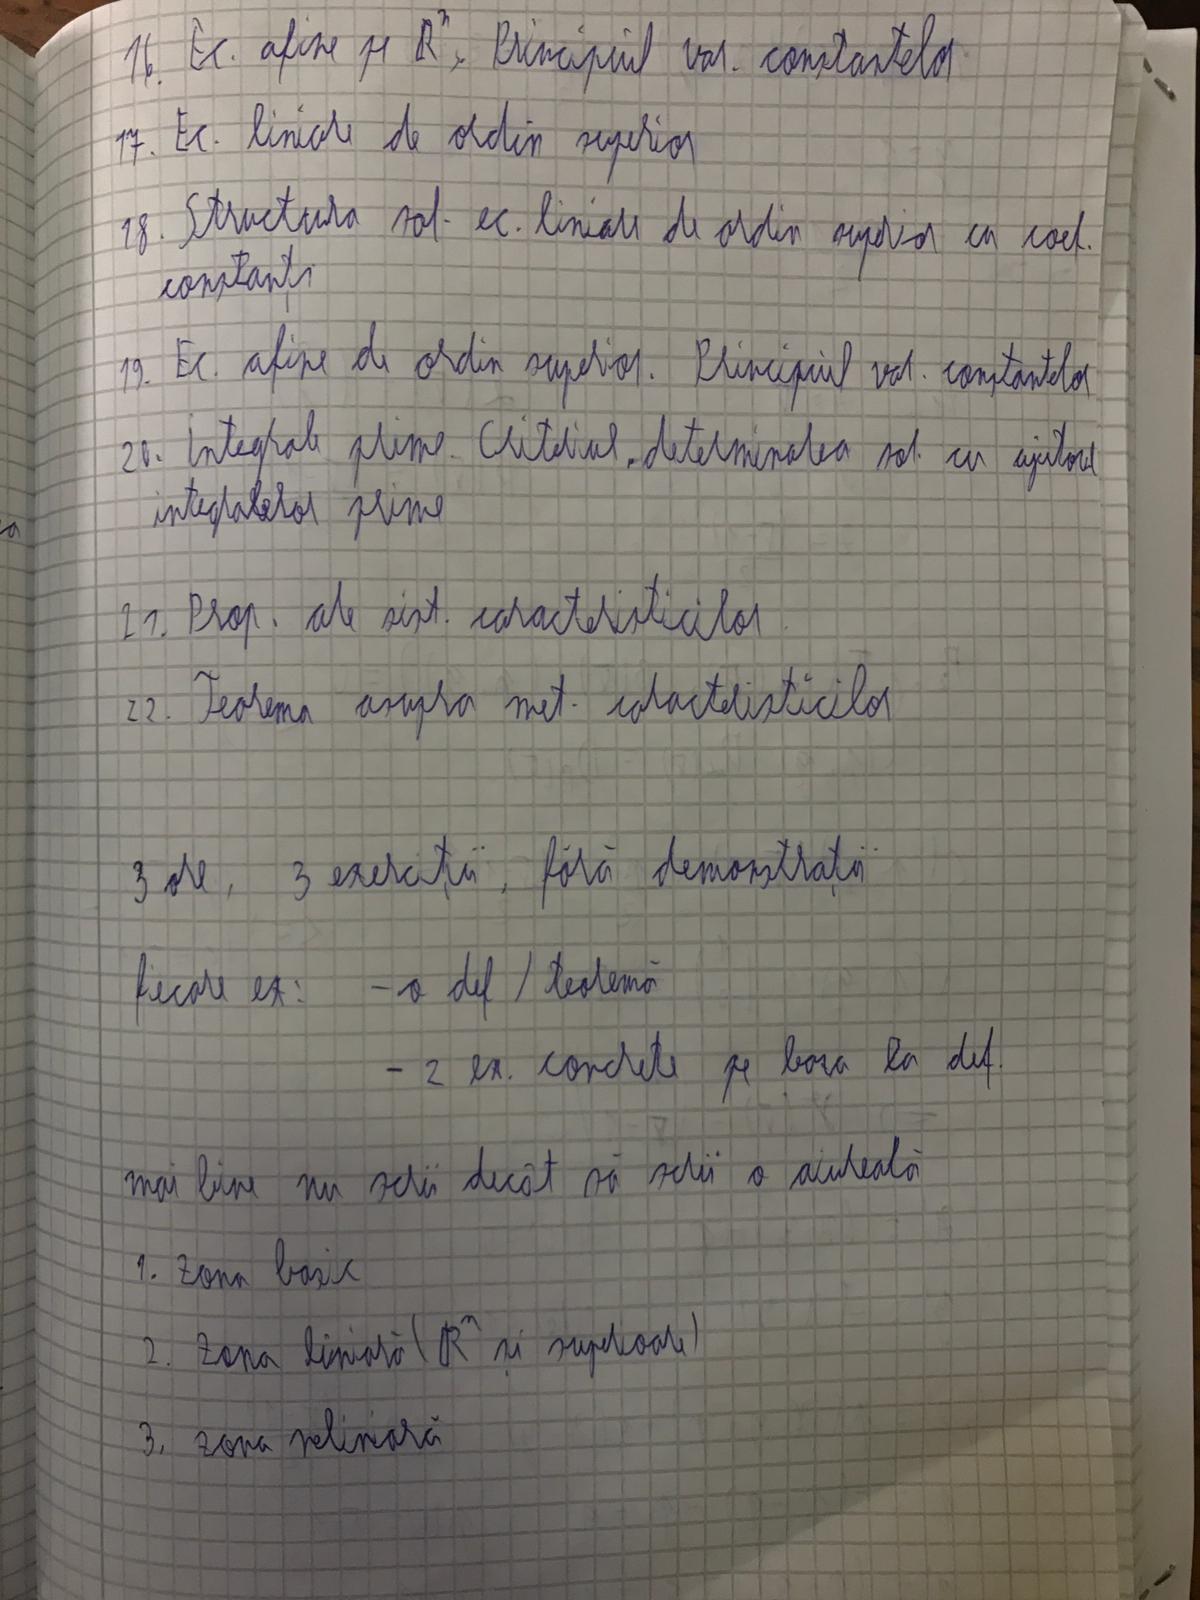 16. Ec. afine pe ℝⁿ, Principiul var. constantelor
17. Ec. liniare de ordin superior
18. Structura sol. ec. liniare de ordin superior cu coef.
constanți
19. Ec. afine de ordin superior. Principiul var. constantelor
20. Integrale prime. Criteriul, determinarea sol. cu ajutorul
integralelor prime
21. Prop. ale sist. caracteristicilor
22. Teorema asupra met. caracteristicilor
3 ore, 3 exerciții, fără demonstrații
fiecare ex: - o def / teoremă
- 2 ex. concrete pe baza la def.
mai bine nu scrii decât să scrii o aiureală
1. Zona basic
2. Zona liniară (ℝⁿ și superioare)
3. Zona neliniară